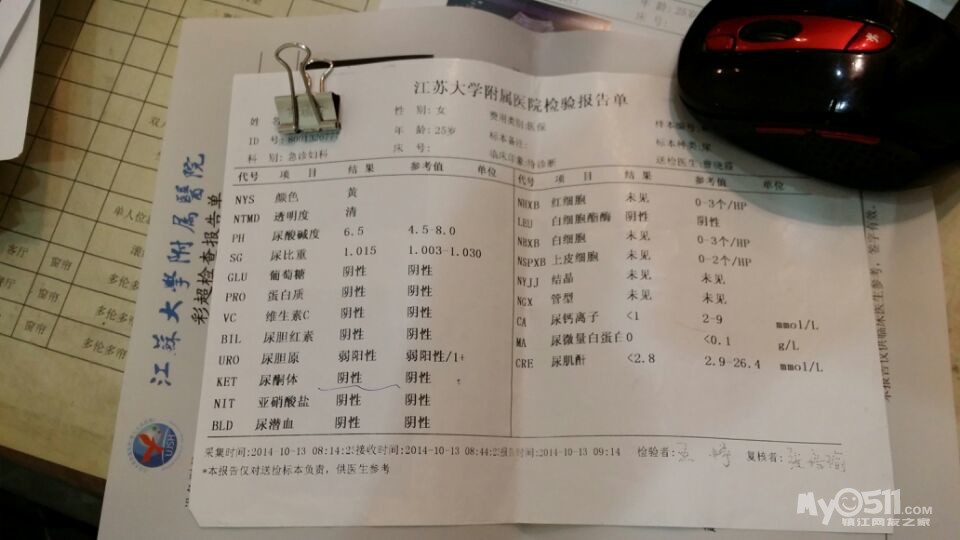 江苏大学附属医院检验报告单
姓 性 别: 女 费用类别:医保 样本编号
ID 号: 年 龄: 25岁 标本备注: 标本种类:尿
科 别: 急诊妇科 床 号: 临床印象:待诊断 送检医生:
代号 项 目 结 果 参考值 单位
NYS 颜色 黄
NTMD 透明度 清
PH 尿酸碱度 6.5 4.5-8.0
SG 尿比重 1.015 1.003-1.030
GLU 葡萄糖 阴性 阴性
PRO 蛋白质 阴性 阴性
VC 维生素C 阴性 阴性
BIL 尿胆红素 阴性 阴性
URO 尿胆原 弱阳性 弱阳性/1+
KET 尿酮体 阴性 阴性
NIT 亚硝酸盐 阴性 阴性
BLD 尿潜血 阴性 阴性
代号 项 目 结 果 参考值 单位
NHXB 红细胞 未见 0-3个/HP
LEU 白细胞酯酶 阴性 阴性
NBXB 白细胞 未见 0-3个/HP
NSPXB 上皮细胞 未见 0-2个/HP
NYJJ 结晶 未见 未见
NGX 管型 未见 未见
CA 尿钙离子 <1 2-9 mmol/L
MA 尿微量白蛋白0 <0.1 g/L
CRE 尿肌酐 <2.8 2.9-26.4 mmol/L
采集时间:2014-10-13 08:14:23接收时间:2014-10-13 08:44:23报告时间:2014-10-13 09:14 检验者: 复核者:
*本报告仅对送检标本负责，供医生参考
江苏大学附属醫院
彩超检查报告单
年 龄: 25岁
床 号:
本报告仅供临床医生参考，签字有效。
客厅 窗帘 多伦多
窗帘 多伦多
窗帘 多伦多
单人位
双人
UJSH
My0511.com
镇江网友之家